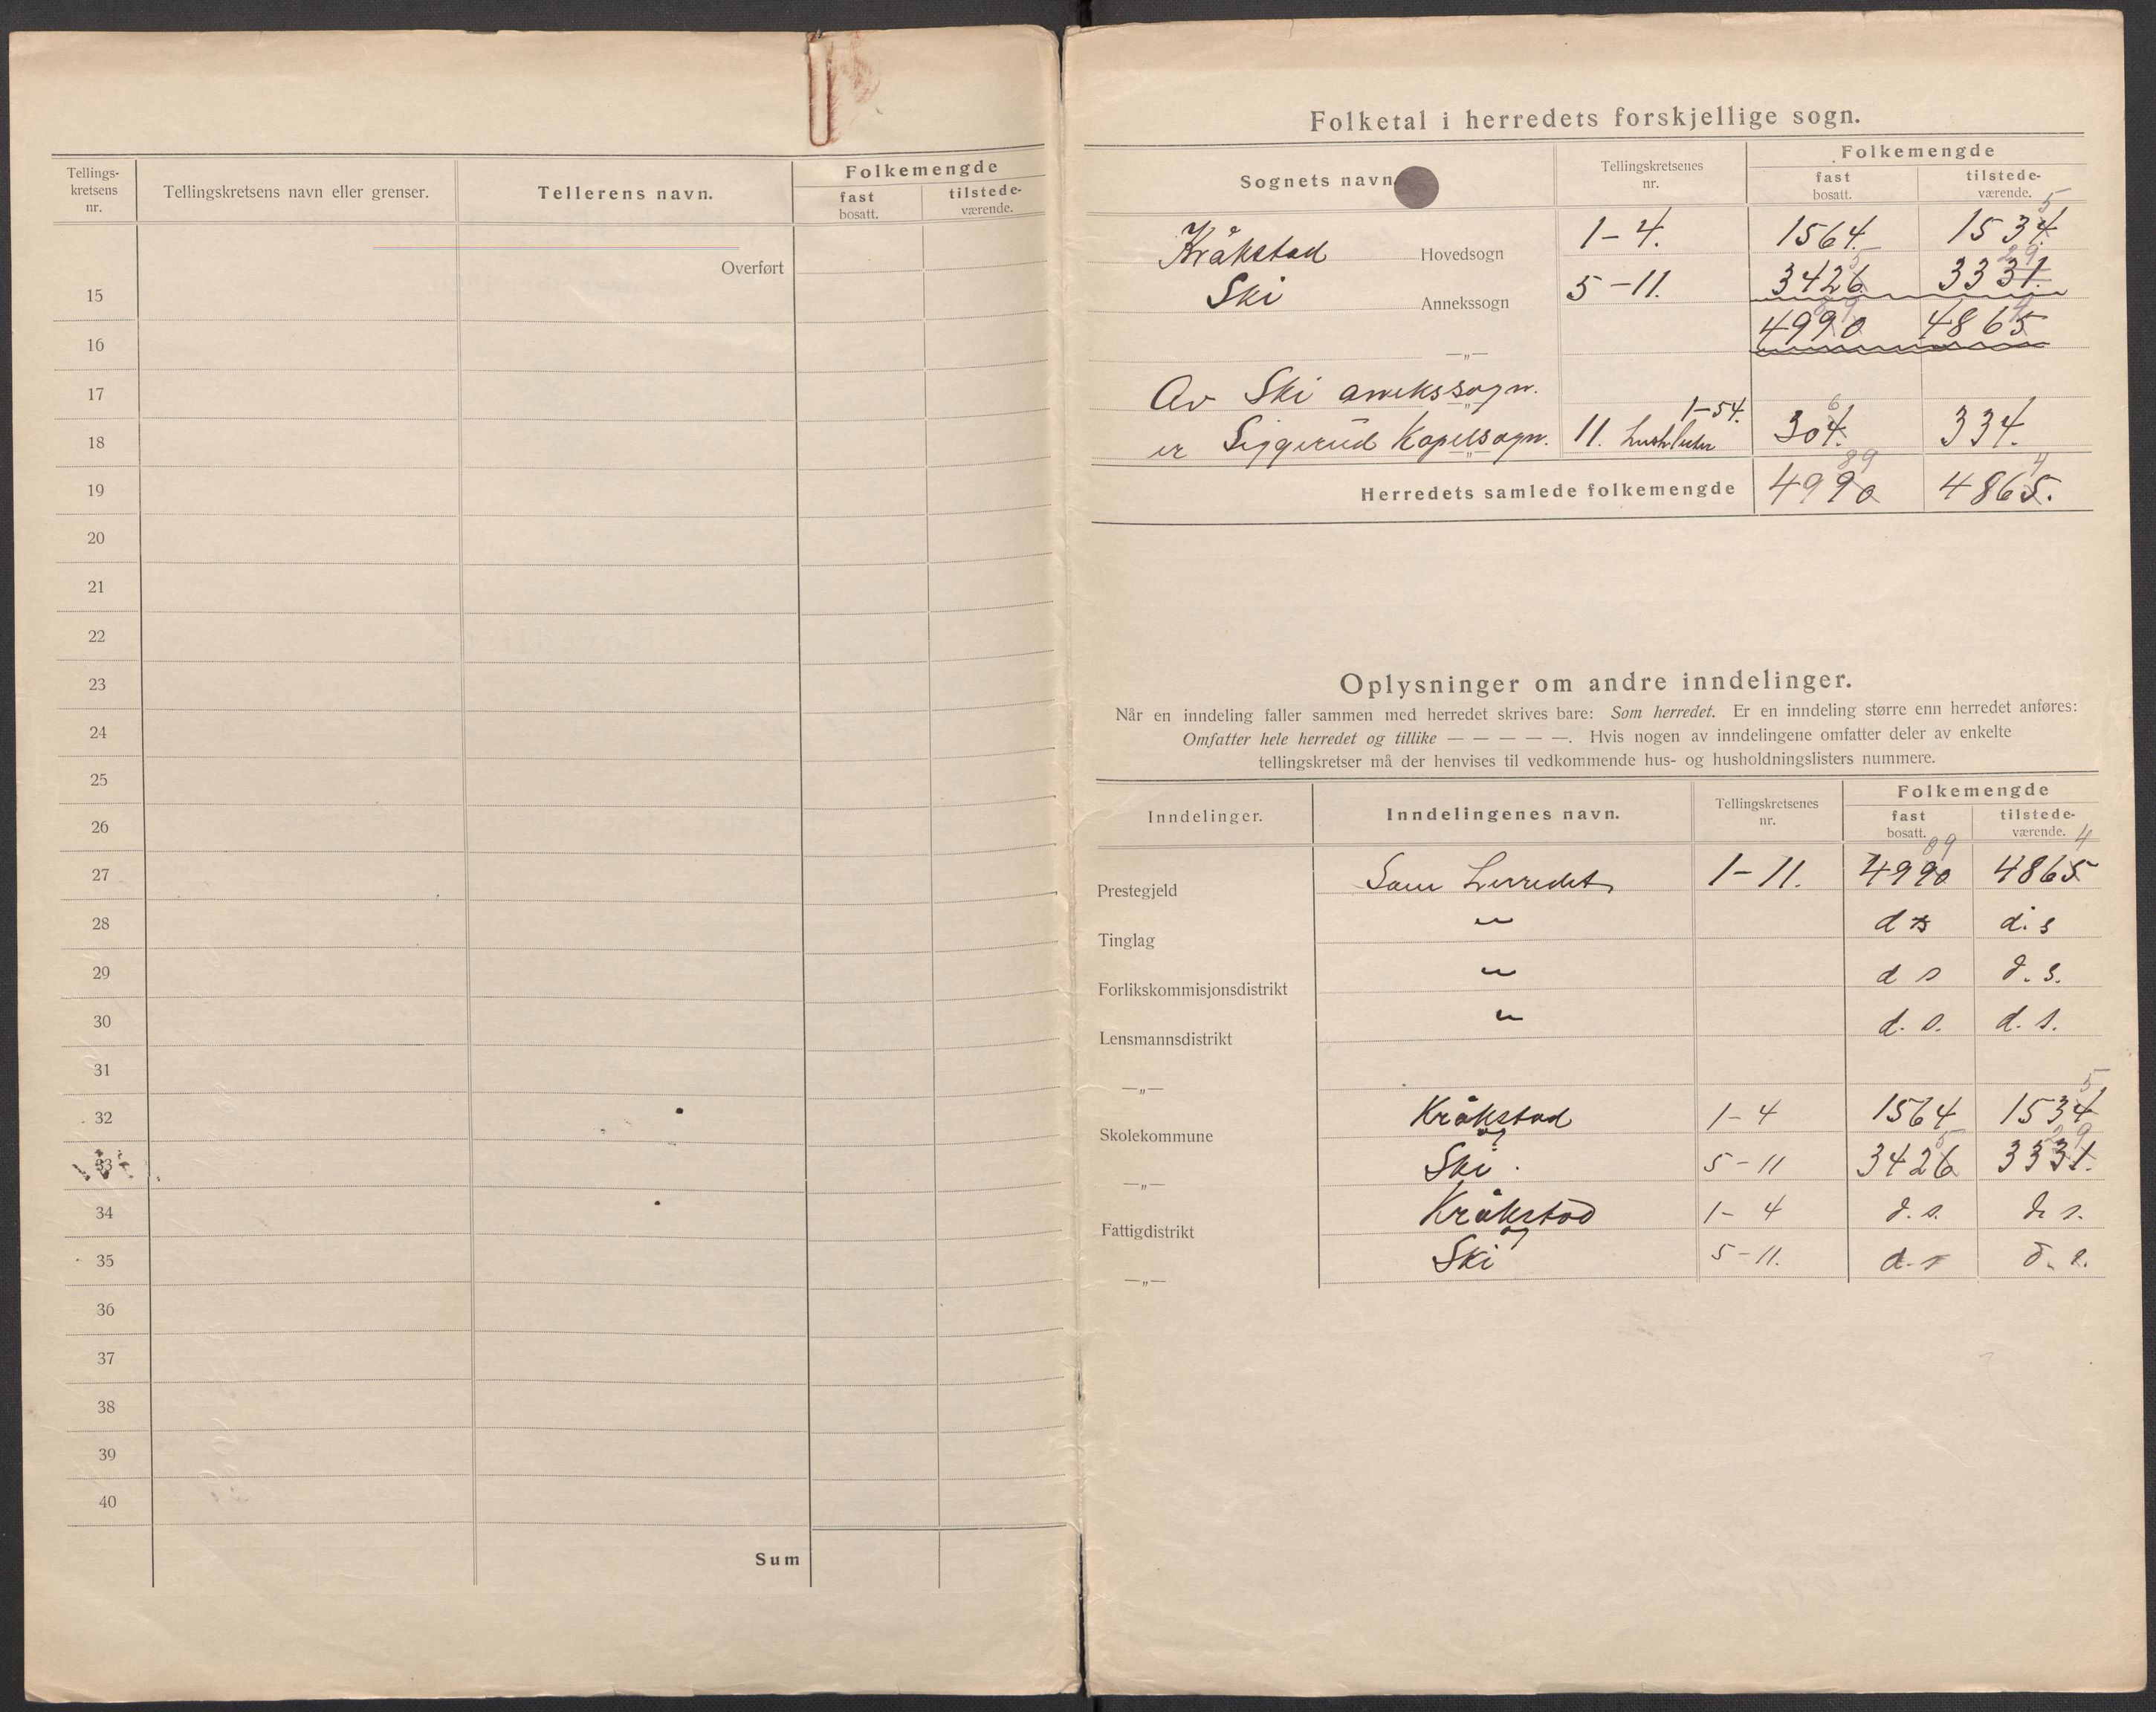 Tellings-
kretsens
nr.
Tellingskretsens navn eller grenser.
Tellerens navn.
Folkemengde
fast
bosatt.
tilstede-
værende.
Overført
15
16
17
18
19
20
21
22
23
24
25
26
27
28
29
30
31
32
33
34
35
36
37
38
39
40
Sum
Folketal i herredets forskjellige sogn.
Sognets navn
Tellingskretsenes
nr.
Folkemengde
fast
bosatt.
tilstede-
værende.
Kråkstad Hovedsogn 1-4. 1564. 1534. 5
Ski Annekssogn 5-11. 3426 5 3331. 29
—„— 4990 89 4865 4
Av Ski annekssogn.
er Siggerud Kapelsogn. 11. 1-54. 304. 6 334.
Herredets samlede folkemengde 4990 89 4865. 4
Oplysninger om andre inndelinger.
Når en inndeling faller sammen med herredet skrives bare: Som herredet. Er en inndeling større enn herredet anføres:
Omfatter hele herredet og tillike — — — — —. Hvis nogen av inndelingene omfatter deler av enkelte
tellingskretser må der henvises til vedkommende hus- og husholdningslisters nummere.
Inndelinger.
Inndelingenes navn.
Tellingskretsenes
nr.
Folkemengde
fast
bosatt.
tilstede-
værende.
Prestegjeld Som herredet 1-11. 4990 89 4865 4
Tinglag „ d s d. s
Forlikskommisjonsdistrikt „ d s d. s.
Lensmannsdistrikt „ d. s. d. s.
—„—
Skolekommune Kråkstad 1-4 1564 1534 5
og
—„— Ski. 5-11 3426 5 3331. 29
Fattigdistrikt Kråkstad 1-4 d. s. d. s.
og
—„— Ski 5-11. d. s d. s.